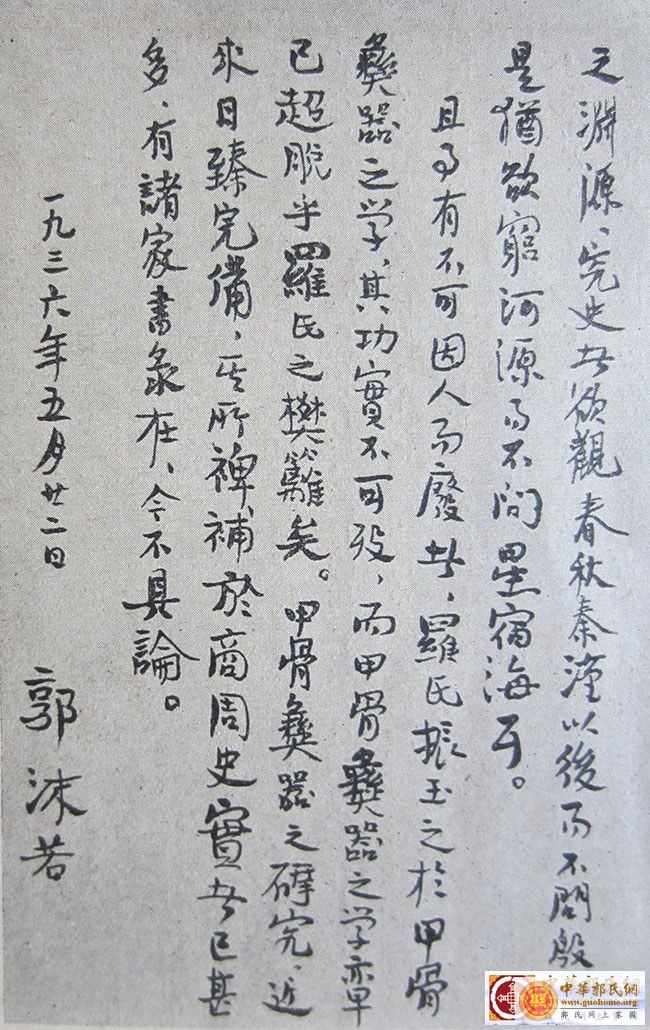 之淵源、究史者欲觀春秋秦漢以後而不問殷
是猶欲窮河源而不問星宿海耳。
且事有不可因人而廢者，羅氏振玉之於甲骨
彝器之学，其功實不可歿，而甲骨彝器之学亦
已超脫乎羅氏之樊籬矣。甲骨彝器之研究，近
來日臻完備，其所裨補於商周史實者已甚
多，有諸家書彔在，今不具論。
一九三六年五月廿二日
郭沫若
中華郭氏網
www.guohome.org
郭氏网上家園